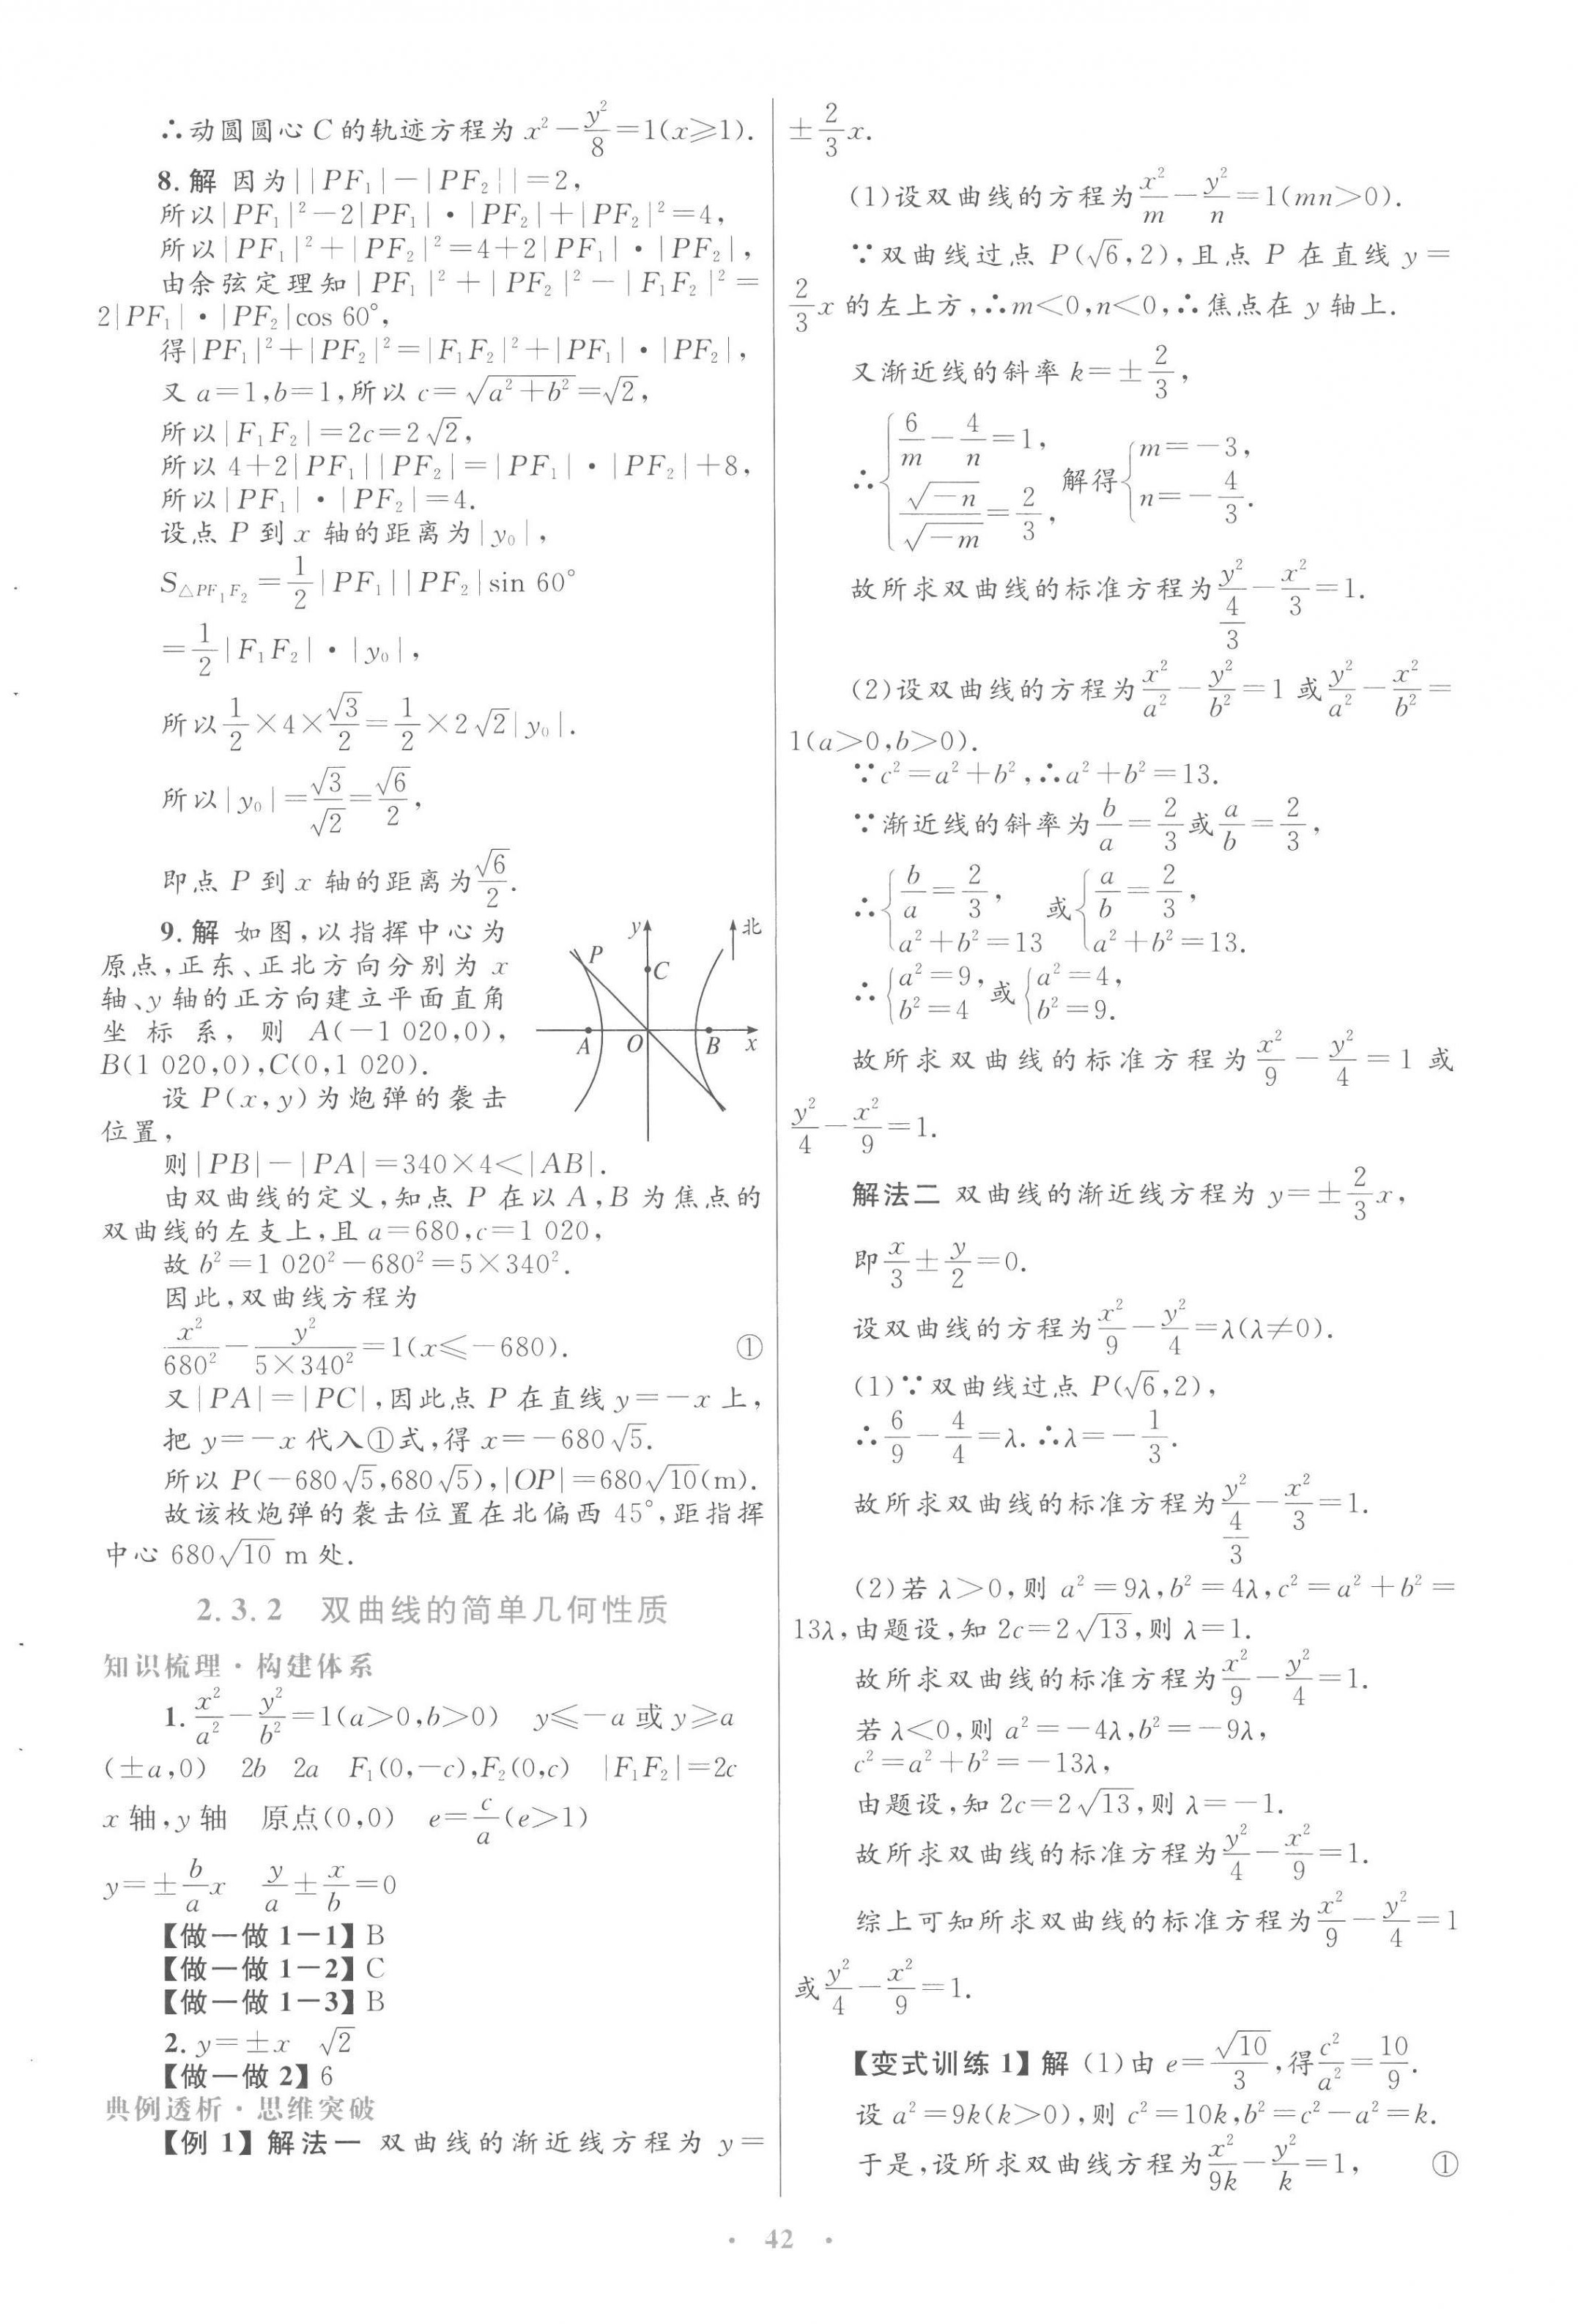 ∴动圆圆心 C 的轨迹方程为 x²−y²/8=1(x≥1).
8.解 因为||PF₁|−|PF₂||=2,
所以|PF₁|²−2|PF₁|·|PF₂|+|PF₂|²=4,
所以|PF₁|²+|PF₂|²=4+2|PF₁|·|PF₂|,
由余弦定理知|PF₁|²+|PF₂|²−|F₁F₂|²=
2|PF₁|·|PF₂|cos 60°,
得|PF₁|²+|PF₂|²=|F₁F₂|²+|PF₁|·|PF₂|,
又 a=1,b=1,所以 c=√(a²+b²)=√2,
所以|F₁F₂|=2c=2√2,
所以 4+2|PF₁||PF₂|=|PF₁|·|PF₂|+8,
所以|PF₁|·|PF₂|=4.
设点 P 到 x 轴的距离为|y₀|,
S△PF₁F₂=1/2|PF₁||PF₂|sin 60°
=1/2|F₁F₂|·|y₀|,
所以1/2×4×√3/2=1/2×2√2|y₀|.
所以|y₀|=√3/√2=√6/2,
即点 P 到 x 轴的距离为√6/2.
9.解 如图,以指挥中心为
原点,正东、正北方向分别为 x
轴、y 轴的正方向建立平面直角
坐标系,则 A(−1 020,0),
B(1 020,0),C(0,1 020).
设 P(x,y)为炮弹的袭击
位置,
y 北
P
C
A O B x
则|PB|−|PA|=340×4<|AB|.
由双曲线的定义,知点 P 在以 A,B 为焦点的
双曲线的左支上,且 a=680,c=1 020,
故 b²=1 020²−680²=5×340².
因此,双曲线方程为
x²/680²−y²/(5×340²)=1(x≤−680). ①
又|PA|=|PC|,因此点 P 在直线 y=−x 上,
把 y=−x 代入①式,得 x=−680√5.
所以 P(−680√5,680√5),|OP|=680√10(m).
故该枚炮弹的袭击位置在北偏西 45°,距指挥
中心 680√10 m 处.
2.3.2 双曲线的简单几何性质
知识梳理·构建体系
1.x²/a²−y²/b²=1(a>0,b>0) y≤−a 或 y≥a
(±a,0) 2b 2a F₁(0,−c),F₂(0,c) |F₁F₂|=2c
x 轴,y 轴 原点(0,0) e=c/a(e>1)
y=±b/a x y/a±x/b=0
【做一做 1−1】B
【做一做 1−2】C
【做一做 1−3】B
2.y=±x √2
【做一做 2】6
典例透析·思维突破
【例 1】解法一 双曲线的渐近线方程为 y=
±2/3 x.
(1)设双曲线的方程为x²/m−y²/n=1(mn>0).
∵双曲线过点 P(√6,2),且点 P 在直线 y=
2/3 x 的左上方,∴m<0,n<0,∴焦点在 y 轴上.
又渐近线的斜率 k=±2/3,
∴{6/m−4/n=1, √(−n)/√(−m)=2/3, 解得{m=−3, n=−4/3.
故所求双曲线的标准方程为y²/(4/3)−x²/3=1.
(2)设双曲线的方程为x²/a²−y²/b²=1 或y²/a²−x²/b²=
1(a>0,b>0).
∵c²=a²+b²,∴a²+b²=13.
∵渐近线的斜率为b/a=2/3或a/b=2/3,
∴{b/a=2/3, a²+b²=13 或{a/b=2/3, a²+b²=13.
∴{a²=9, b²=4 或{a²=4, b²=9.
故所求双曲线的标准方程为x²/9−y²/4=1 或
y²/4−x²/9=1.
解法二 双曲线的渐近线方程为 y=±2/3 x,
即x/3±y/2=0.
设双曲线的方程为x²/9−y²/4=λ(λ≠0).
(1)∵双曲线过点 P(√6,2),
∴6/9−4/4=λ.∴λ=−1/3.
故所求双曲线的标准方程为y²/(4/3)−x²/3=1.
(2)若 λ>0,则 a²=9λ,b²=4λ,c²=a²+b²=
13λ,由题设,知 2c=2√13,则 λ=1.
故所求双曲线的标准方程为x²/9−y²/4=1.
若 λ<0,则 a²=−4λ,b²=−9λ,
c²=a²+b²=−13λ,
由题设,知 2c=2√13,则 λ=−1.
故所求双曲线的标准方程为y²/4−x²/9=1.
综上可知所求双曲线的标准方程为x²/9−y²/4=1
或y²/4−x²/9=1.
【变式训练 1】解 (1)由 e=√10/3,得c²/a²=10/9.
设 a²=9k(k>0),则 c²=10k,b²=c²−a²=k.
于是,设所求双曲线方程为x²/9k−y²/k=1, ①
· 42 ·